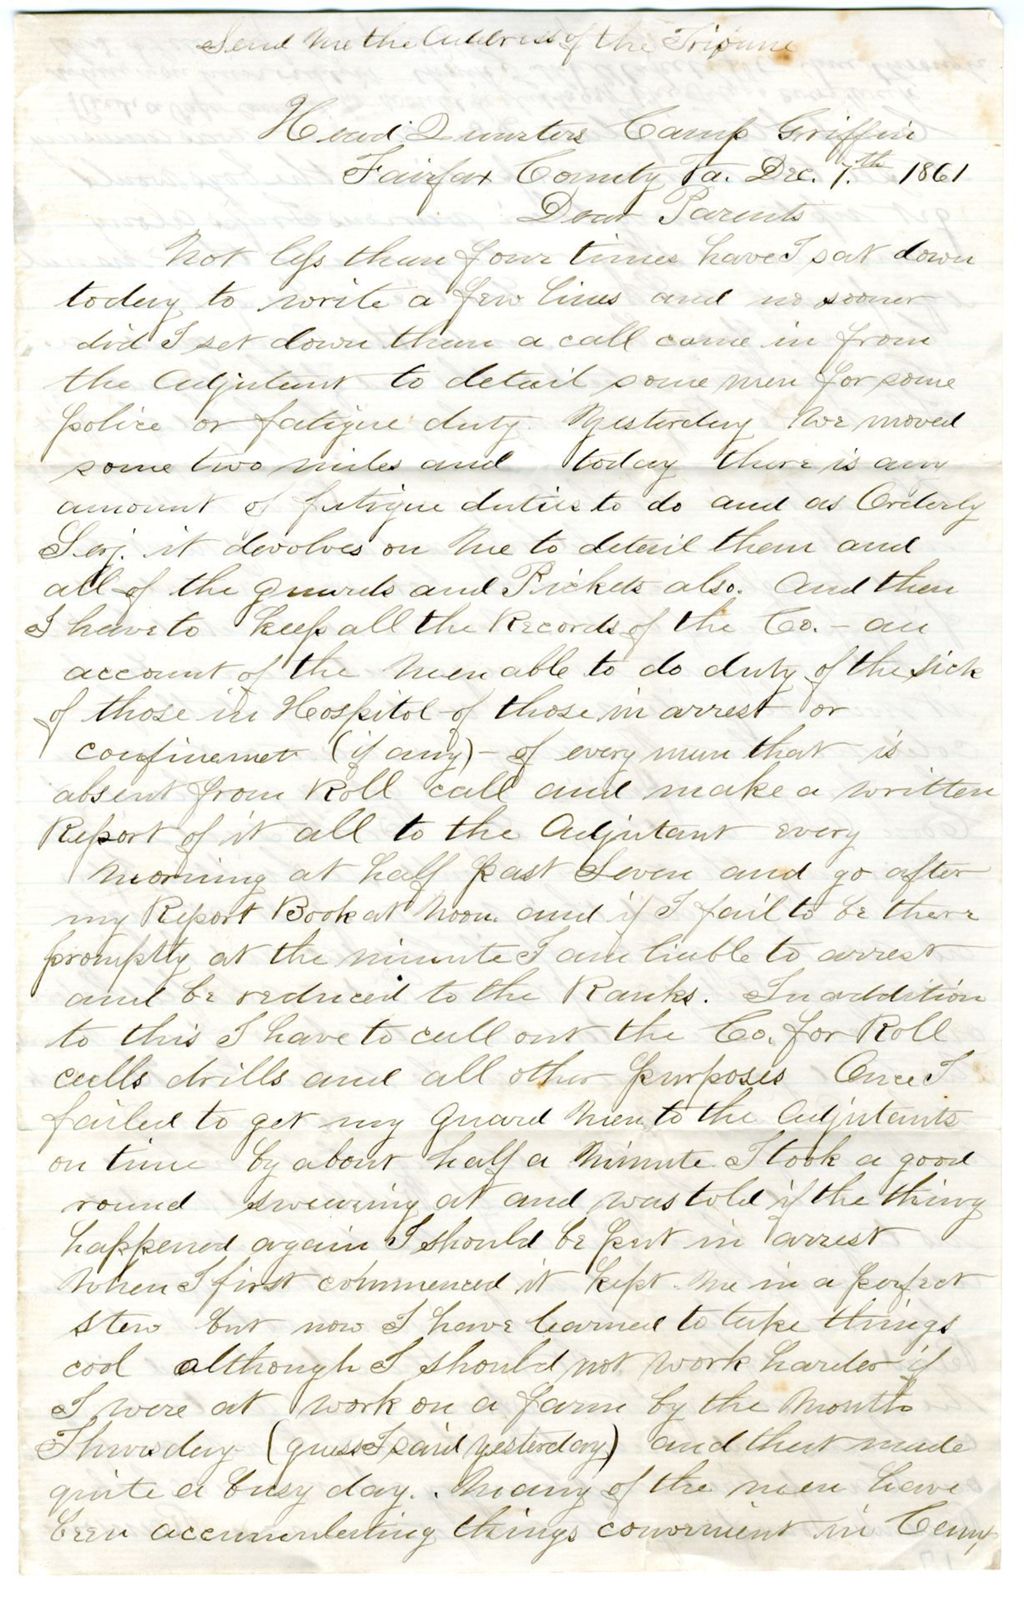 Send me the Address of the Tripune
Head Quarters Camp Griffin
Fairfax County Va. Dec. 7.th 1861
Dear Parents
Not less than four times have I sat down
today to write a few lines and no sooner
did I set down than a call came in from
the Adjutant to detail some men for some
police or fatigue duty. Yesterday we moved
some two miles and today there is any
amount of fatigue duties to do and as Orderly
Serj. it devolves on me to detail them and
all of the guards and Pickets also. And then
I have to keep all the Records of the Co. – an
account of the men able to do duty of the sick
of those in Hospitol – of those in arrest or
confinemet (if any) – of every man that is
absent from Roll call and make a written
Report of it all to the Adjutant every
morning at half past Seven and go after
my Report Book at Noon. and if I fail to be there
promptly at the minute I am liable to arrest
and be reduced to the Ranks. In addition
to this I have to call out the Co. for Roll
calls drills and all other purposes Once I
failed to get my guard men to the Adjutants
on time by about half a minute I took a good
round swearing at and was told if the thing
happened again I should be put in arrest
When I first commenced it kept me in a perfect
stew but now I have learned to take things
cool although I should not work harder if
I were at work on a farm by the month
Thursday (guess I said yesterday) and that made
quite a busy day. Many of the men have
been accumulating things convenient in Camp